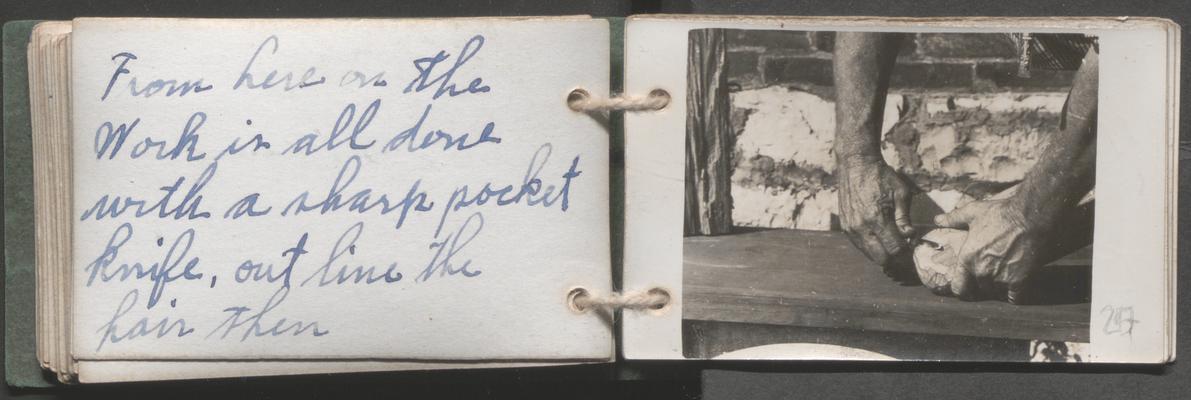 From here on the
Work is all done
with a sharp pocket
knife, out line the
hair then
247